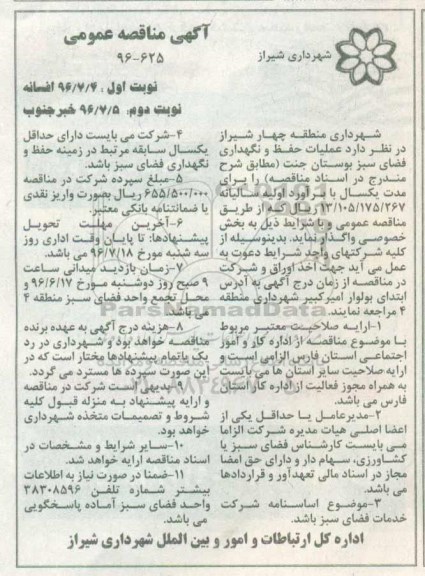 آگهی مناقصه عمومی
۹۶-۶۲۵
شهرداری شیراز
نوبت اول : ۹۶/۷/۴ افسانه
نوبت دوم: ۹۶/۷/۵ خبر جنوب
شهرداری منطقه چهار شیراز
در نظر دارد عملیات حفظ و نگهداری
فضای سبز بوستان جنت (مطابق شرح
مندرج در اسناد مناقصه) را برای
مدت یکسال با برآورد اولیه سالیانه
۱۳/۱۰۵/۱۷۵/۲۶۷ ریال که از طریق
مناقصه عمومی و با شرایط ذیل به بخش
خصوصی واگذار نماید. بدینوسیله از
کلیه شرکتهای واجد شرایط دعوت به
عمل می آید جهت اخذ اوراق و شرکت
در مناقصه از زمان درج آگهی به آدرس
ابتدای بولوار امیرکبیر شهرداری منطقه
۴ مراجعه نمایند.
۱-ارایه صلاحیت معتبر مربوط
با موضوع مناقصه از اداره کار و امور
اجتماعی استان فارس الزامی است و
ارایه صلاحیت سایر استان ها می بایست
به همراه مجوز فعالیت از اداره کار استان
فارس می باشد.
۲-مدیرعامل یا حداقل یکی از
اعضا اصلی هیات مدیره شرکت الزاما
می بایست کارشناس فضای سبز یا
کشاورزی، سهام دار و دارای حق امضا
مجاز در اسناد مالی تعهدآور و قراردادها
می باشد.
۳-موضوع اساسنامه شرکت
خدمات فضای سبز باشد.
۴-شرکت می بایست دارای حداقل
یکسال سابقه مرتبط در زمینه حفظ و
نگهداری فضای سبز باشد.
۵-مبلغ سپرده شرکت در مناقصه
۶۵۵/۵۰۰/۰۰۰ ریال بصورت واریز نقدی
یا ضمانتنامه بانکی معتبر.
۶-آخرین مهلت تحویل
پیشنهادها: تا پایان وقت اداری روز
سه شنبه مورخ ۹۶/۷/۱۸ می باشد.
۷-زمان بازدید میدانی ساعت
۹ صبح روز دوشنبه مورخ ۹۶/۶/۱۷ و
محل تجمع واحد فضای سبز منطقه ۴
می باشد.
۸-هزینه درج آگهی به عهده برنده
مناقصه خواهد بود و شهرداری در رد
یک یا تمام پیشنهادها مختار است که در
این صورت سپرده ها مسترد می گردد.
۹-بدیهی است شرکت در مناقصه
و ارایه پیشنهاد به منزله قبول کلیه
شروط و تصمیمات متخذه شهرداری
خواهد بود.
۱۰-سایر شرایط و مشخصات در
اسناد مناقصه ارایه خواهد شد.
۱۱-ضمنا در صورت نیاز به اطلاعات
بیشتر شماره تلفن ۳۸۳۰۸۵۹۶
واحد فضای سبز آماده پاسخگویی
می باشد.
اداره کل ارتباطات و امور و بین الملل شهرداری شیراز
ParsNamadData